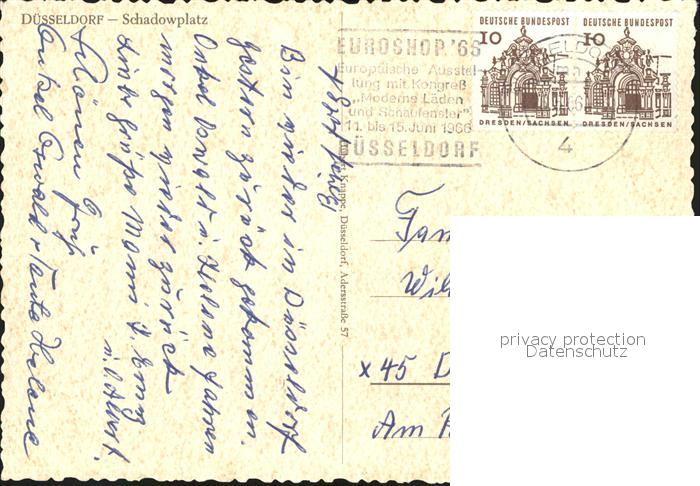 DÜSSELDORF — Schadowplatz
EUROSHOP '66
Europäische Ausstel-
lung mit Kongreß
„Moderne Läden
und Schaufenster"
11. bis 15. Juni 1966
DÜSSELDORF
4
DEUTSCHE BUNDESPOST
10
DRESDEN/SACHSEN
DEUTSCHE BUNDESPOST
10
DRESDEN/SACHSEN
Knappe, Düsseldorf, Adersstraße 57
Bin wieder in Düsseldorf
gestern zurück gekommen.
Onkel Oswald u. Helene fahren
morgen wieder zurück
Liebe Grüße Mama
u. Albert.
Schönen Gruß
Onkel Oswald + Tante Helene
Fam
Wil
x 45 D
Am
privacy protection
Datenschutz